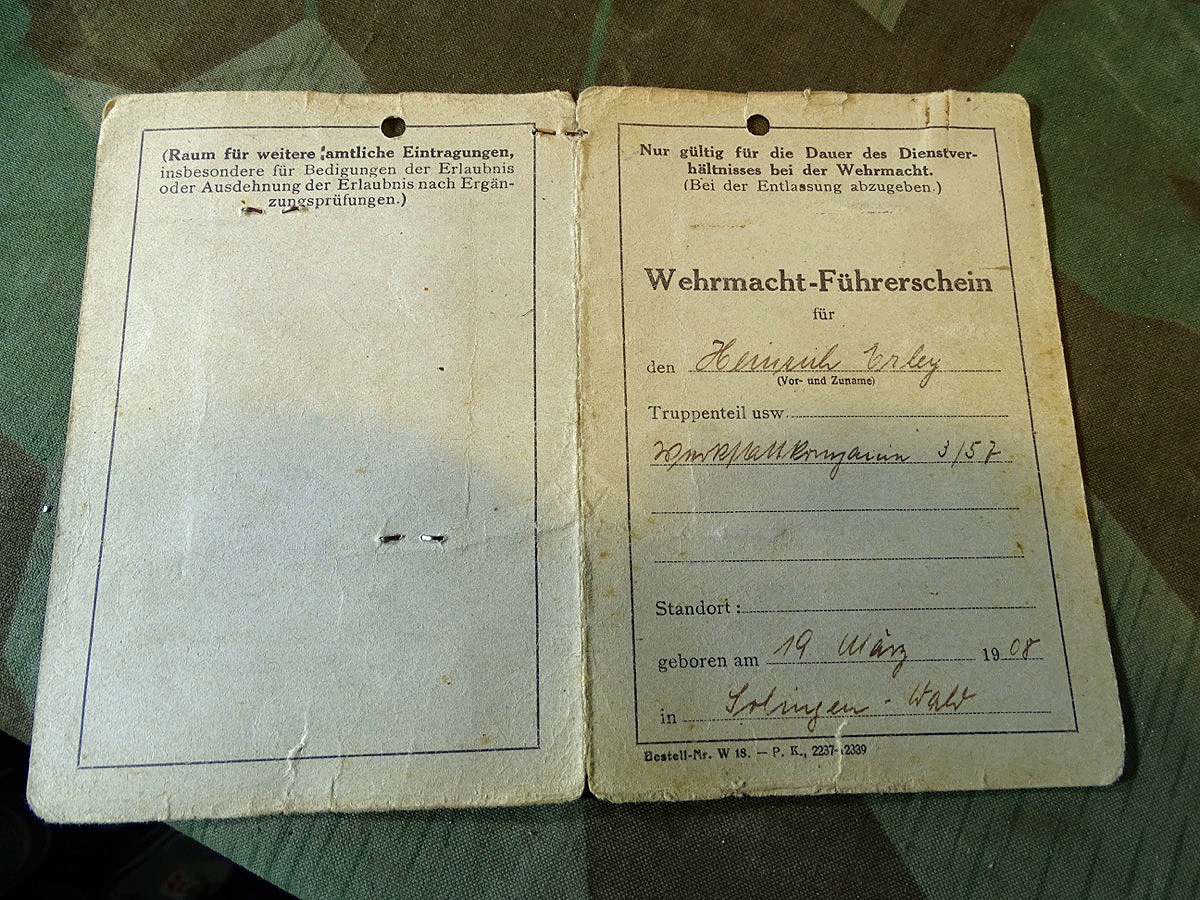 (Raum für weitere amtliche Eintragungen,
insbesondere für Bedigungen der Erlaubnis
oder Ausdehnung der Erlaubnis nach Ergän-
zungsprüfungen.)
Nur gültig für die Dauer des Dienstver-
hältnisses bei der Wehrmacht.
(Bei der Entlassung abzugeben.)
Wehrmacht-Führerschein
für
den Heinrich Erley
(Vor- und Zuname)
Truppenteil usw.
Werkstattkompanie 3/57
Standort:
geboren am 19 März 1908
in Solingen-Wald
Bestell-Nr. W 18. — P. K., 2237-12339